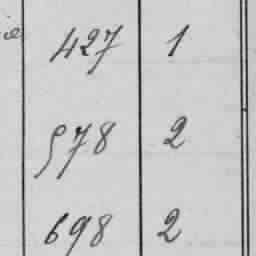 427 1
578 2
698 2